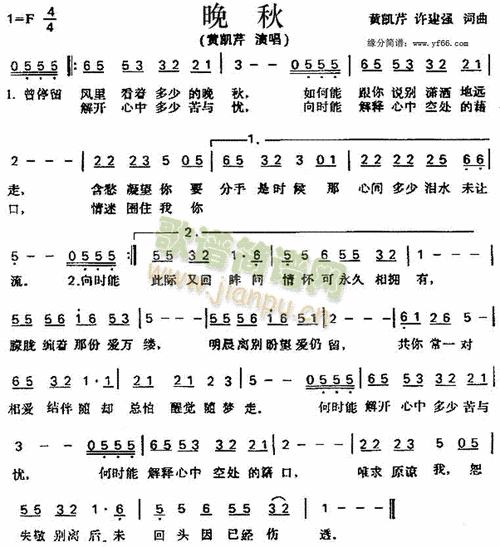 晚秋
1=F 4/4
(黄凯芹 演唱)
黄凯芹 许建强 词曲
缘分简谱：www.yf66.com
0555 | 65 53 32 21 | 3 - - 0555 | 65 53 32 21 |
1. 曾停留 风里 看着 多少的 晚 秋， 如何能 跟你 说别 潇洒 地远
解开 心中 多少 苦与 忧， 向时能 解释 心中 空处 的藉
1.
2 - - - | 22 23 5 05 | 65 32 3 01 | 22 23 25 66 |
走， 含愁 凝望 你 要 分手 是时 候 那 心间 多少 泪水 未让
口， 情迷 困住 我 你
2.
5 - - 0555 :| 55 32 1·6 | 55 65 65 32 | 1 - - - |
流。 2.向时能 此际 又回 眸 问 情怀 可永 久 相拥 有，
朦胧 绕着 那份 爱万 缕， 明晨 离别 盼望 爱仍 留， 共你 常一 对
相爱 结伴 随 却 总怕 醒觉 随 梦 走。 何时能 解开 心中 多少 苦与
忧， 何时能 解释 心中 空处 的藉 口， 唯求 原谅 我， 恕
55 32 1·6 | 55 55 65 32 | 1 - - - ‖
失敬 别离 后 未 回头 因 已经 伤 透。
歌谱简谱网
www.jianpu.cn